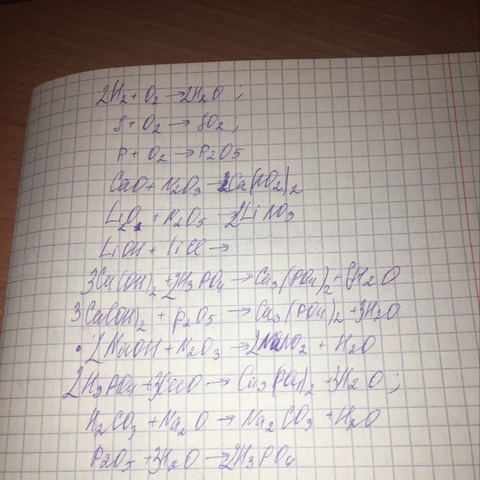 2H2 + O2 → 2H2O ;
S + O2 → SO2 ;
P + O2 → P2O5
CaO + N2O3 → Ca(NO2)2
Li2O + N2O5 → 2LiNO3
LiOH + LiCl →
3Ca(OH)2 + 2H3PO4 → Ca3(PO4)2 + 6H2O
3Ca(OH)2 + P2O5 → Ca3(PO4)2 + 3H2O
• 2NaOH + N2O3 → 2NaNO2 + H2O
2H3PO4 + 3CaO → Ca3(PO4)2 + 3H2O ;
H2CO3 + Na2O → Na2CO3 + H2O
P2O5 + 3H2O → 2H3PO4